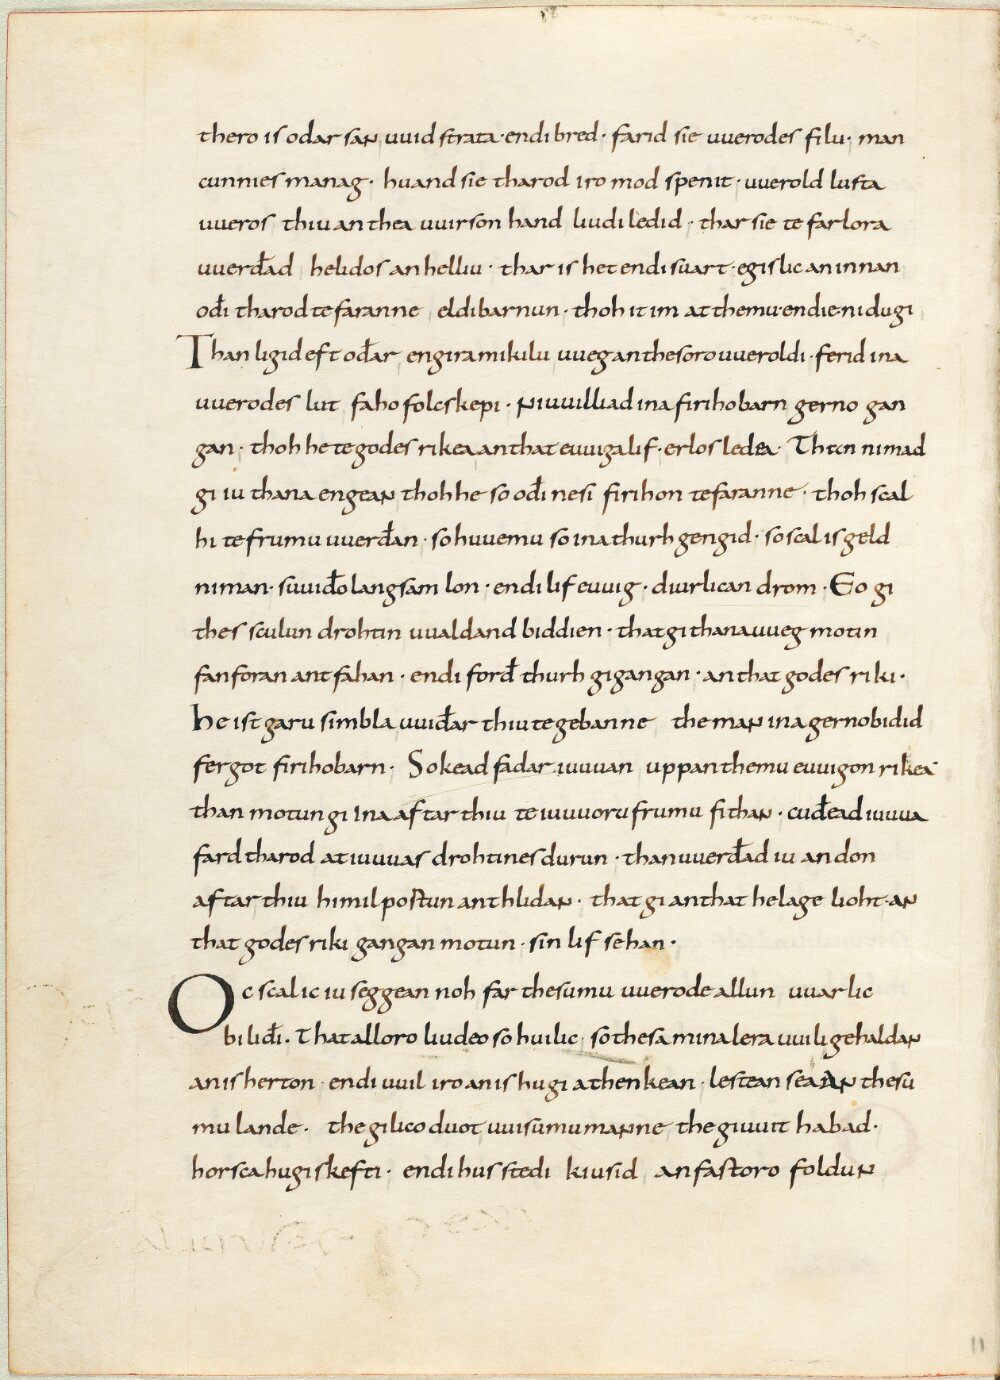 thero is odar san uuid strata· endi bred· farid sie uuerodes filu· man
cunnies manag· huand sie tharod iro mod spenit· uuerold lusta
uueros thiu an thea uuirson hand liudi ledid· thar sie te farlora
uuerđad helidos an helliu· thar is het endi suart· egislic an innan
ođi tharod te faranne eldibarnun· thoh it im at themu endie ni dugi
Than ligid eft ođar engira mikilu uueg an thesoro uueroldi· ferid ina
uuerodes lut faho folcskepi· ni uuilliad ina firiho barn gerno gan
gan· thoh he te godes rikea an that euuiga lif· erlos ledea· Than nimad
gi iu thana engean thoh he so ođi ne si firihon te faranne· thoh scal
hi te frumu uuerđan· so huuemu so ina thurh gengid· so scal is geld
niman· suuiđo langsam lon· endi lif euuig· diurlican drom· Eo gi
thes sculun drohtin uualdand biddien· that gi thana uueg motin
fan foran antfahan· endi forđ thurh gigangan· an that godes riki·
he ist garu simbla uuiđar thiu te gebanne the man ina gerno bidid
fergot firiho barn· Sokead fadar iuuuan uppan themu euuigon rikea
than motun gi ina aftar thiu te iuuuoru frumu fithan· cuđead iuuua
fard tharod at iuuuas drohtines durun· than uuerđad iu andon
aftar thiu himilportun anthlidan· that gi an that helage lioht· an
that godes riki gangan motun· sin lif sehan·
Oc scal ic iu seggean noh far thesumu uuerode allun uuarlic
biliđi· That alloro liudeo so huilic so thesa mina lera uuili gehaldan
an is herton· endi uuil iro an is hugi athenkean· lestean sea an thesu
mu lande· the gilico duot uuisumu manne the giuuit habad·
horsca hugiskefti· endi husstedi kiusid an fastoro foldun
11